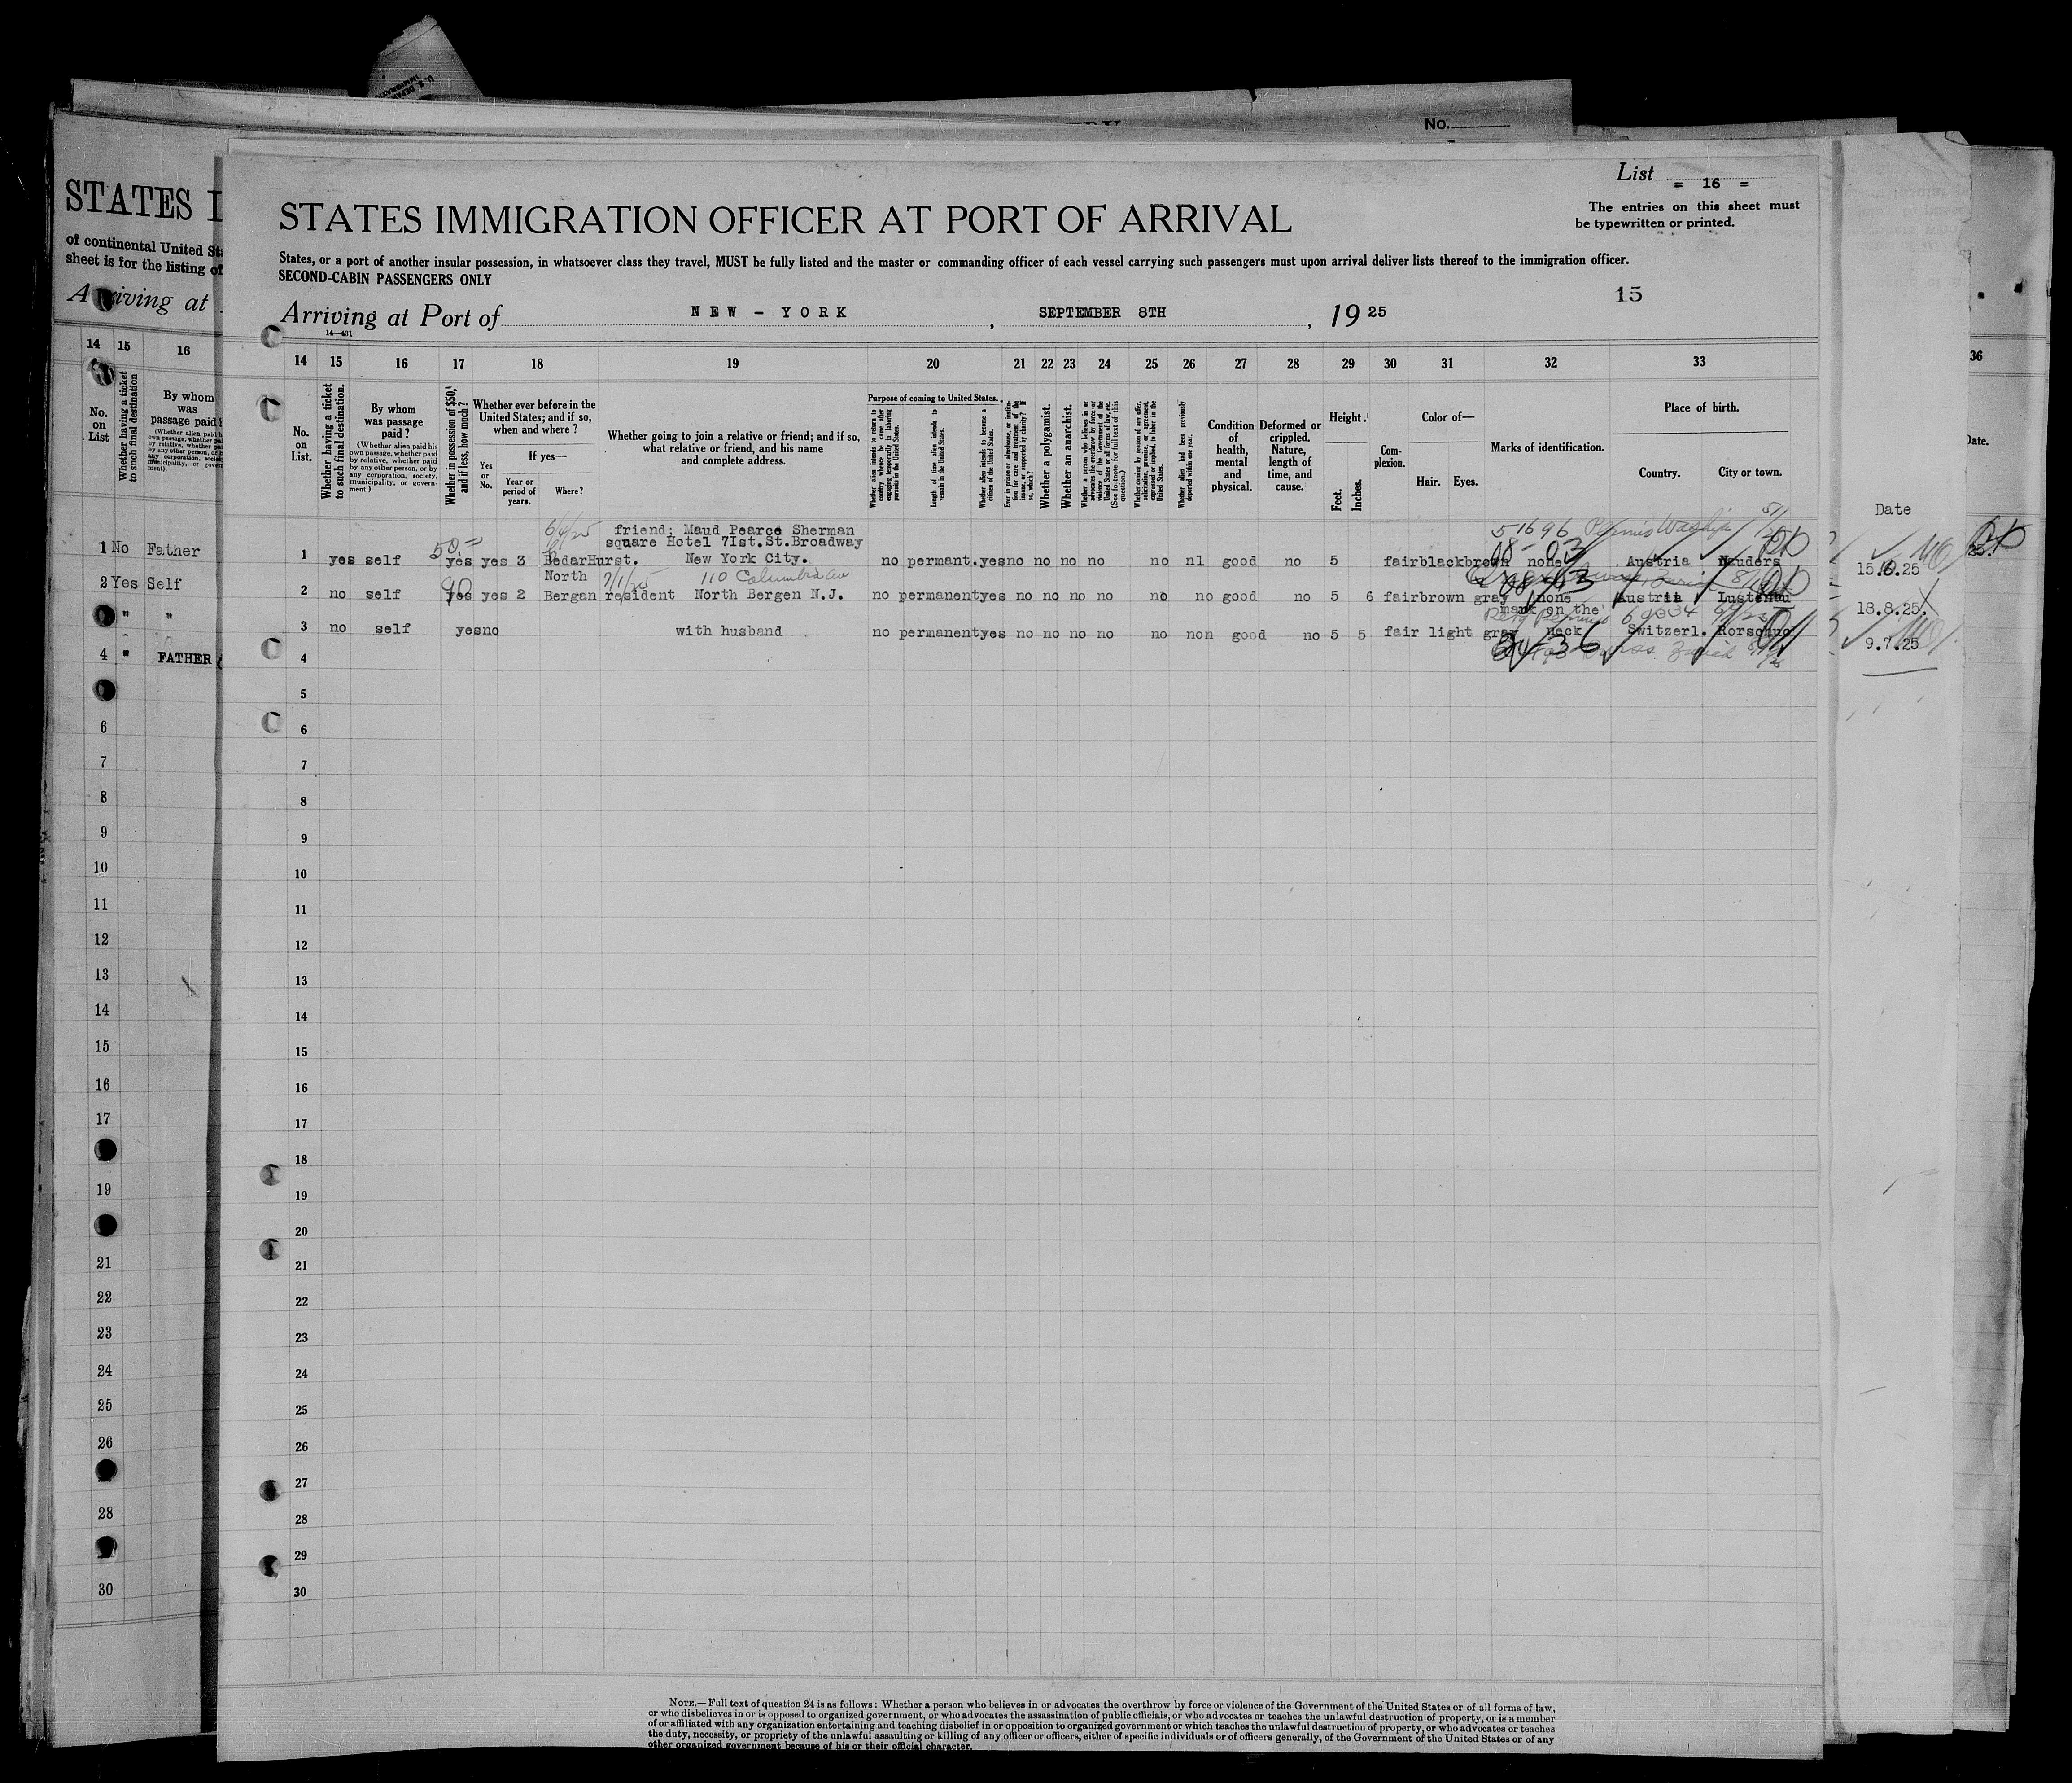 No.
List = 16 =
STATES IMMIGRATION OFFICER AT PORT OF ARRIVAL
The entries on this sheet must
be typewritten or printed.
States, or a port of another insular possession, in whatsoever class they travel, MUST be fully listed and the master or commanding officer of each vessel carrying such passengers must upon arrival deliver lists thereof to the immigration officer.
SECOND-CABIN PASSENGERS ONLY
15
Arriving at Port of NEW - YORK , SEPTEMBER 8TH , 19 25
14—431
14 15 16 17 18 19 20 21 22 23 24 25 26 27 28 29 30 31 32 33
No. on List.
Whether having a ticket to such final destination.
By whom was passage paid?
(Whether alien paid his own passage, whether paid by relative, whether paid by any other person, or by any corporation, society, municipality, or government.)
Whether in possession of $50, and if less, how much?
Whether ever before in the United States; and if so, when and where?
Yes or No.
If yes—
Year or period of years.
Where?
Whether going to join a relative or friend; and if so, what relative or friend, and his name and complete address.
Purpose of coming to United States.
Whether alien intends to return to country whence he came after engaging temporarily in laboring pursuits in the United States.
Length of time alien intends to remain in the United States.
Whether alien intends to become a citizen of the United States.
Whether a polygamist.
Whether an anarchist.
Whether coming by reason of any offer, solicitation, promise, or agreement, expressed or implied, to labor in the United States.
Whether alien had been previously deported within one year.
Condition of health, mental and physical.
Deformed or crippled. Nature, length of time, and cause.
Height.
Feet. Inches.
Complexion.
Color of—
Hair. Eyes.
Marks of identification.
Place of birth.
Country. City or town.
Date
friend; Maud Pearce Sherman
square Hotel 7Ist.St.Broadway
1 yes self yes yes 3 BedarHurst. New York City. no permant.yes no no no no no nl good no 5 fair black brown none Austria Nauders 15.6.25
North 7/1/25 110 Columbia av
2 no self yes yes 2 Bergan resident North Bergen N.J. no permanent yes no no no no no no good no 5 6 fair brown gray none Austria Lustenau 18.8.25.
mark on the
3 no self yes no with husband no permanent yes no no no no no non good no 5 5 fair light gray neck Switzerl. 9.7.25
4
5
6
7
8
9
10
11
12
13
14
15
16
17
18
19
20
21
22
23
24
25
26
27
28
29
30
NOTE.—Full text of question 24 is as follows: Whether a person who believes in or advocates the overthrow by force or violence of the Government of the United States or of all forms of law,
or who disbelieves in or is opposed to organized government, or who advocates the assassination of public officials, or who advocates or teaches the unlawful destruction of property, or is a member
of or affiliated with any organization entertaining and teaching disbelief in or opposition to organized government or which teaches the unlawful destruction of property, or who advocates or teaches
the duty, necessity, or propriety of the unlawful assaulting or killing of any officer or officers, either of specific individuals or of officers generally, of the Government of the United States or of any
other organized government because of his or their official character.
STATES I
of continental United St
sheet is for the listing of
Arriving at
14 15 16
No. on List
Whether having a ticket to such final destination
By whom was passage paid
1 No Father
2 Yes Self
" "
4 " FATHER
6
7
8
9
10
11
12
13
14
15
16
17
19
21
22
23
24
25
26
28
30
36
Date.